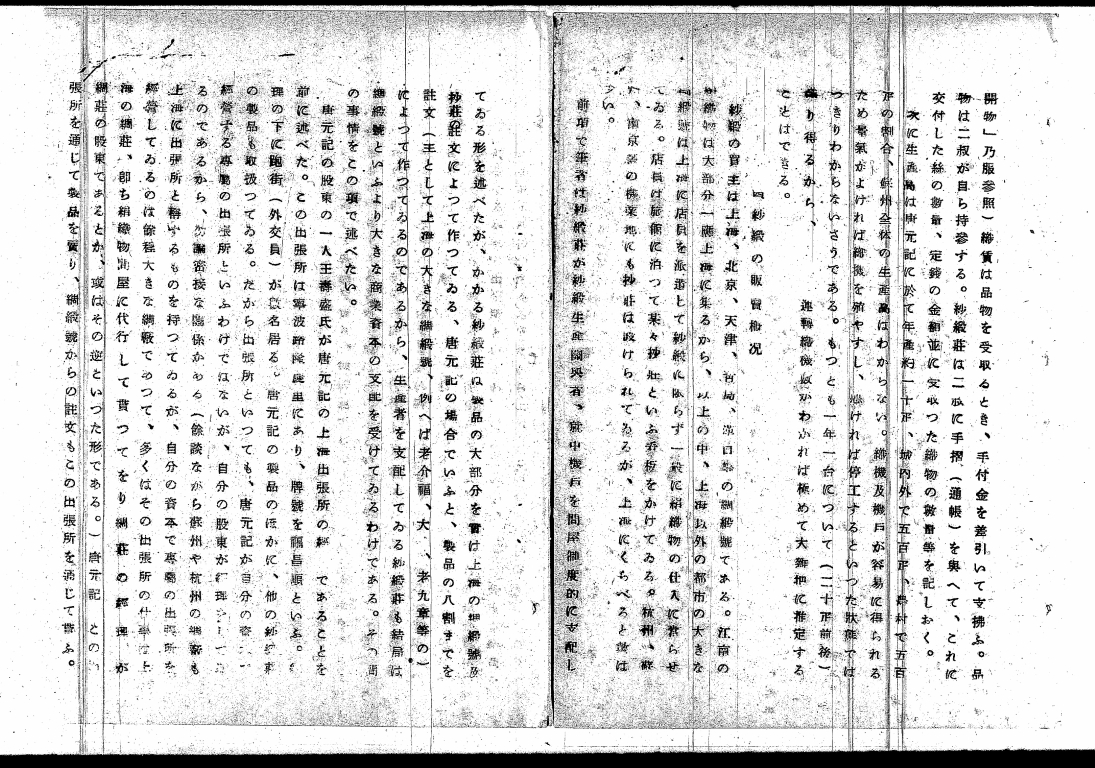 開物」乃服參照）織賃は品物を受取るとき、手付金を差引いて支拂ふ。品
物は二叔が自ら持參する。紗緞莊は二叔に手摺、（通帳）を與へて、これに
交付した絲の數量、定錢の金額並に受取つた織物の數量等を記しおく。
次に生產高は唐元記に於て年產約一千疋、城内外で五百疋、鄕村で五百
疋の割合、蘇州全体の生產高はわからない。織機及機戶が容易に得られる
ため景氣がよければ織機を殖やすし、惡ければ停工するといつた狀態では
つきりわからないさうである。もつとも一年一台について（二十疋前後）
織り得るから、運轉織機數がわかれば極めて大雜把に推定する
ことはできる。
紗緞の販賣槪況
紗緞の買主は上海、北京、天津、靑島、漢口等の綢緞號である。江南の
絹織物は大部分一應上海に集るから、以上の中、上海以外の都市の大きな
綢緞號は上海に店員を派遣して紗緞に限らず一般に絹織物の仕入に當らせ
てゐる。店員は旅館に泊つて某々抄莊といふ看板をかけてゐる。杭州、蘇
州、南京等の機業地にも抄莊は設けられてゐるが、上海にくらべると數は
少い。
前項で筆者は紗緞莊が紗緞生產關與者、就中機戶を問屋制度的に支配し
てゐる形を述べたが、かかる紗緞莊は製品の大部分を實は上海の綢緞號及
抄莊の註文によつて作つてゐる、唐元記の場合でいふと、製品の八割までを
註文（主として上海の大きな綢緞號、例へば老介福、大、老九章等の）
によつて作つてゐるのであるから、生產者を支配してゐる紗緞莊も結局は
綢緞號といふより大きな商業資本の支配を受けてゐるわけである。その間
の事情をこの項で述べたい。
唐元記の股東の一人王壽盛氏が唐元記の上海出張所の經であることを
前に述べた。この出張所は寧波路隆慶里にあり、牌號を福昌順といふ。
理の下に跑街（外交員）が數名居る。唐元記の製品のほかに、他の紗緞莊
の製品も取扱つてゐる。だから出張所といつても、唐元記が自分の資
經營する專屬の出張所といふわけではないが、自分の股東が經理を
るのであるから、勿論密接な關係がある（餘談ながら蘇州や杭州の綢莊も
上海に出張所と稱するものを持つてゐるが、自分の資本で專屬の出張所を
經營してゐるのは餘程大きな綢緞であつて、多くはその出張所の仕事を上
海の綢莊、卽ち絹織物問屋に代行して貰つてをり綢莊の經理が
綢莊の股東であるとか、或はその逆といつた形である。）唐元記この
張所を通じて製品を賣り、綢緞號からの註文もこの出張所を通じて貰ふ。